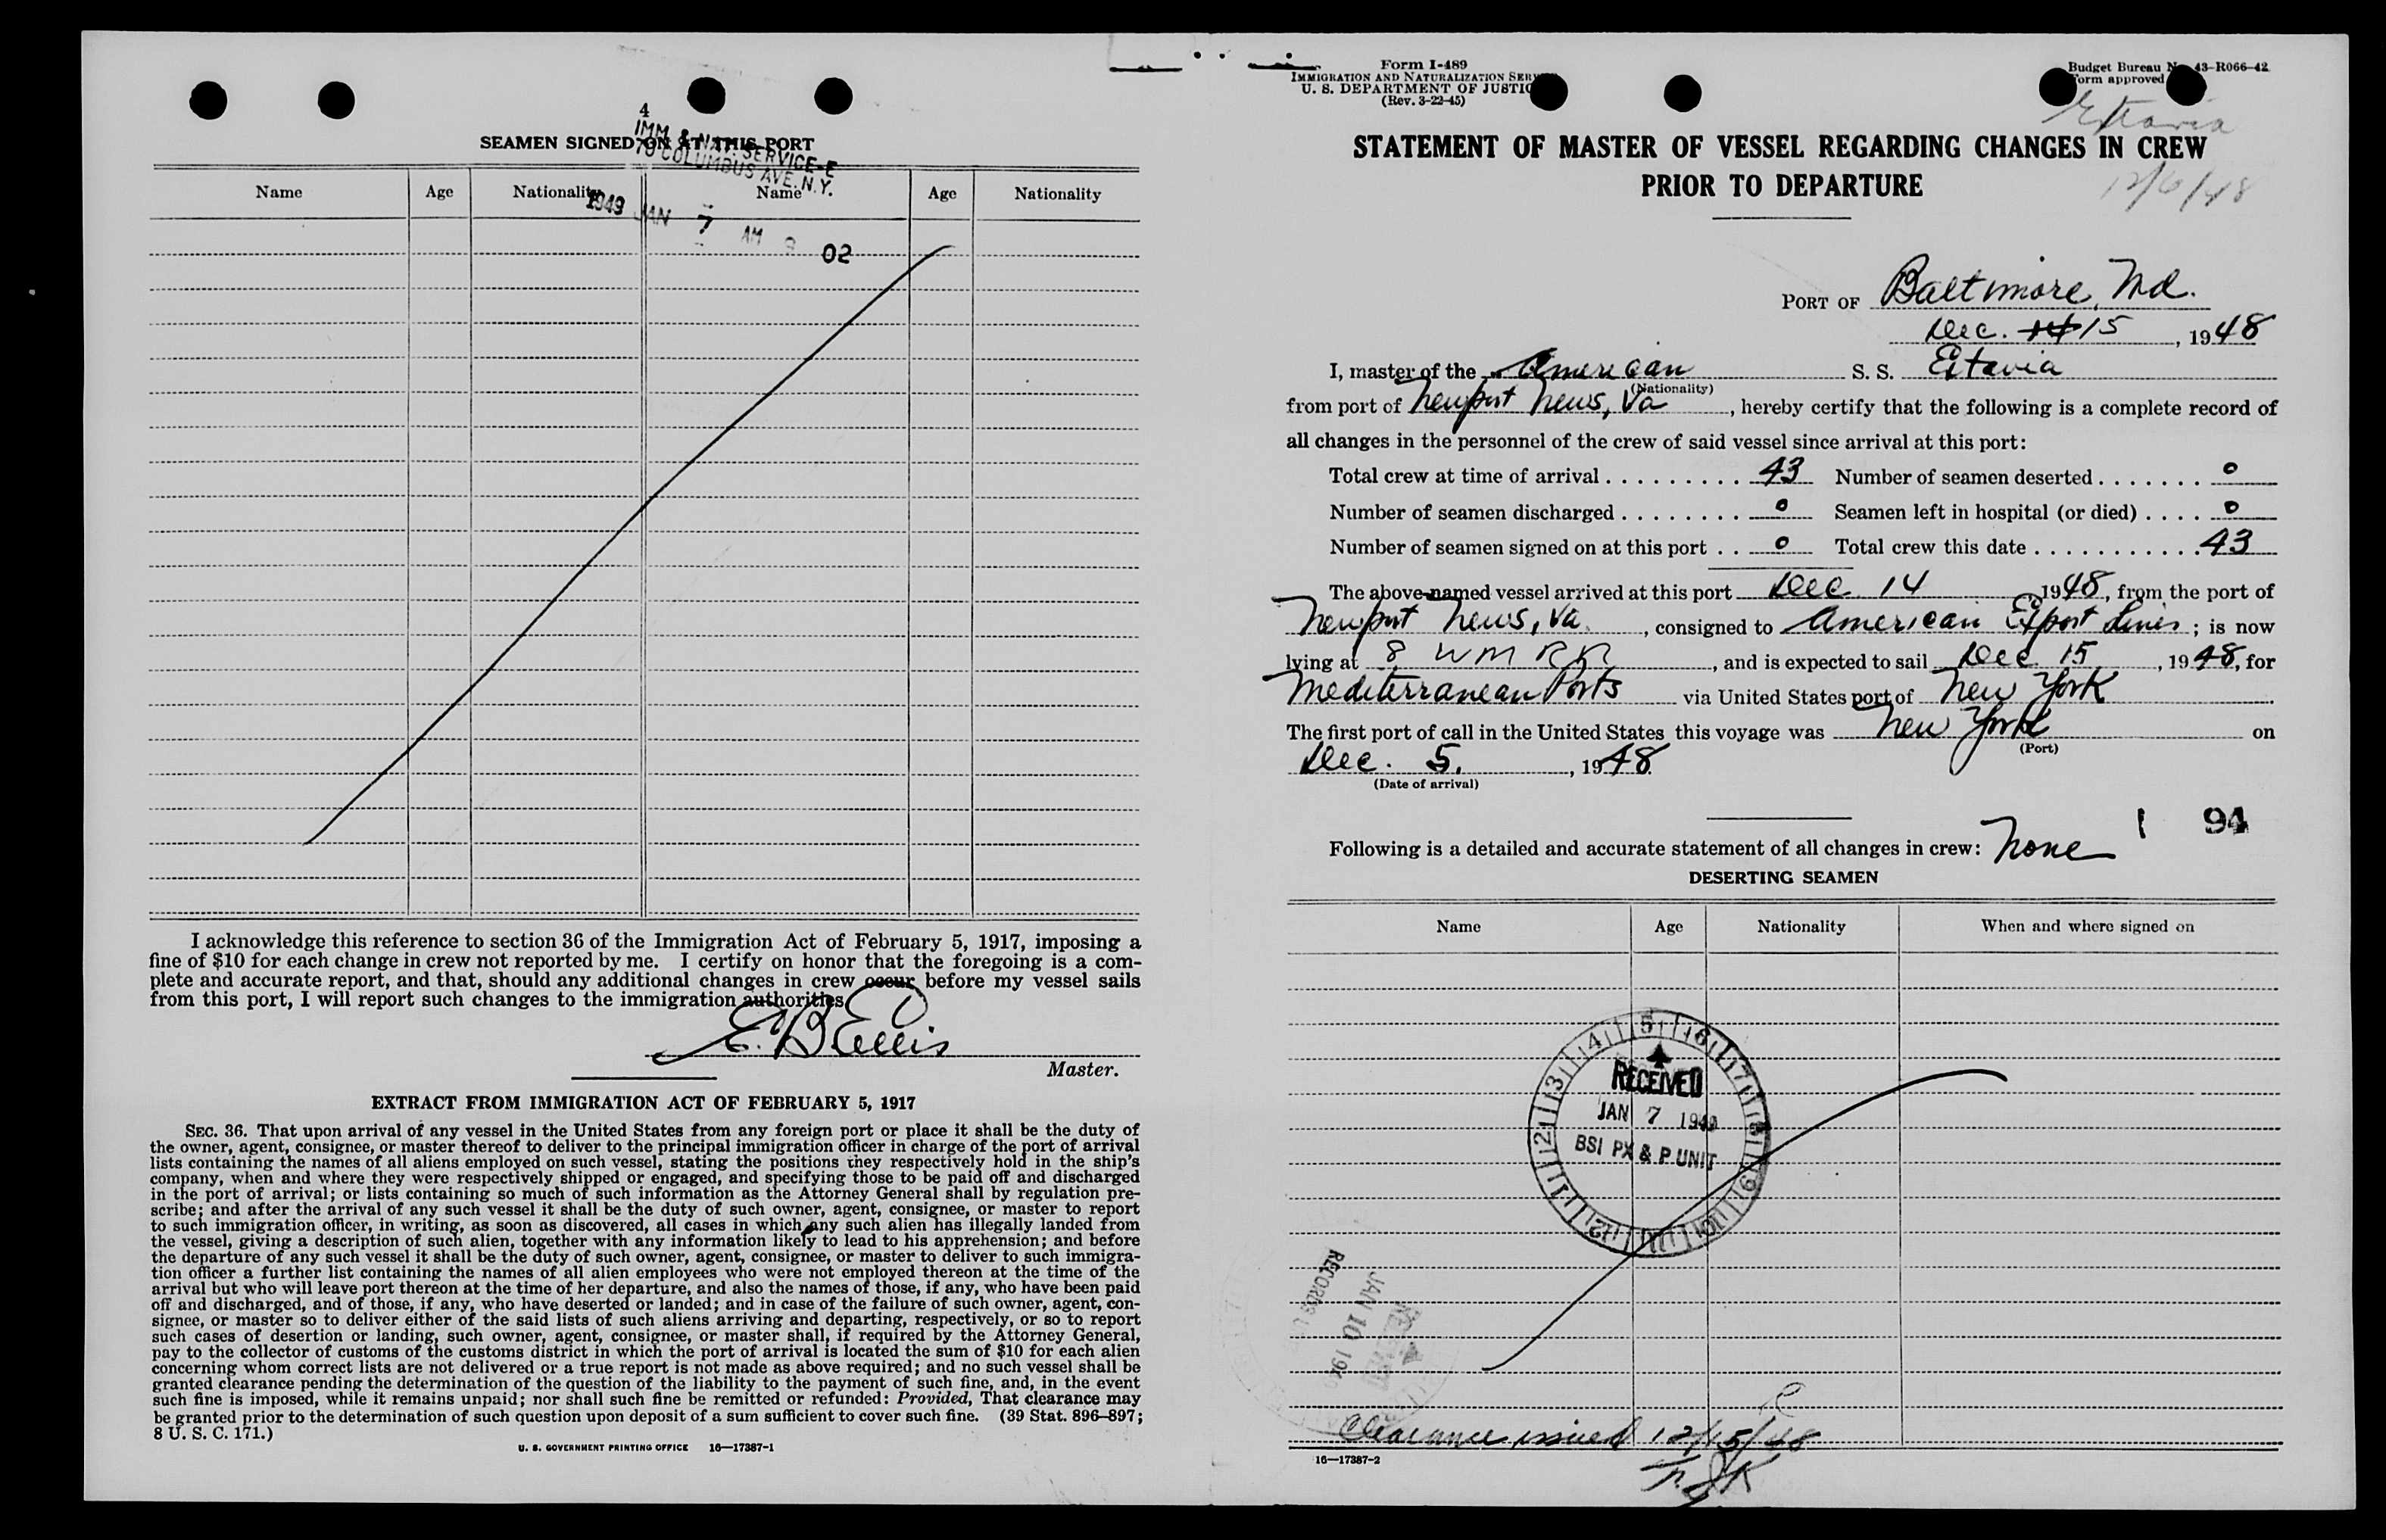 4
IMM. & NAT. SERVICE-E
70 COLUMBUS AVE. N.Y.
1949 JAN 7 AM 9 02
SEAMEN SIGNED ON AT THIS PORT
Name Age Nationality Name Age Nationality
I acknowledge this reference to section 36 of the Immigration Act of February 5, 1917, imposing a
fine of $10 for each change in crew not reported by me. I certify on honor that the foregoing is a com-
plete and accurate report, and that, should any additional changes in crew occur before my vessel sails
from this port, I will report such changes to the immigration authorities.
E. B Ellis
Master.
EXTRACT FROM IMMIGRATION ACT OF FEBRUARY 5, 1917
SEC. 36. That upon arrival of any vessel in the United States from any foreign port or place it shall be the duty of
the owner, agent, consignee, or master thereof to deliver to the principal immigration officer in charge of the port of arrival
lists containing the names of all aliens employed on such vessel, stating the positions they respectively hold in the ship's
company, when and where they were respectively shipped or engaged, and specifying those to be paid off and discharged
in the port of arrival; or lists containing so much of such information as the Attorney General shall by regulation pre-
scribe; and after the arrival of any such vessel it shall be the duty of such owner, agent, consignee, or master to report
to such immigration officer, in writing, as soon as discovered, all cases in which any such alien has illegally landed from
the vessel, giving a description of such alien, together with any information likely to lead to his apprehension; and before
the departure of any such vessel it shall be the duty of such owner, agent, consignee, or master to deliver to such immigra-
tion officer a further list containing the names of all alien employees who were not employed thereon at the time of the
arrival but who will leave port thereon at the time of her departure, and also the names of those, if any, who have been paid
off and discharged, and of those, if any, who have deserted or landed; and in case of the failure of such owner, agent, con-
signee, or master so to deliver either of the said lists of such aliens arriving and departing, respectively, or so to report
such cases of desertion or landing, such owner, agent, consignee, or master shall, if required by the Attorney General,
pay to the collector of customs of the customs district in which the port of arrival is located the sum of $10 for each alien
concerning whom correct lists are not delivered or a true report is not made as above required; and no such vessel shall be
granted clearance pending the determination of the question of the liability to the payment of such fine, and, in the event
such fine is imposed, while it remains unpaid; nor shall such fine be remitted or refunded: Provided, That clearance may
be granted prior to the determination of such question upon deposit of a sum sufficient to cover such fine. (39 Stat. 896–897;
8 U. S. C. 171.)
U. S. GOVERNMENT PRINTING OFFICE 16—17387-1
Form I-489
IMMIGRATION AND NATURALIZATION SERV
U. S. DEPARTMENT OF JUSTIC
(Rev. 3-22-45)
Budget Bureau N 43-R066-42
orm approved
Extavia
12/6/48
STATEMENT OF MASTER OF VESSEL REGARDING CHANGES IN CREW
PRIOR TO DEPARTURE
PORT OF Baltimore, Md.
Dec. 14 15, 1948
I, master of the American S. S. Extavia
(Nationality)
from port of Newport News, Va, hereby certify that the following is a complete record of
all changes in the personnel of the crew of said vessel since arrival at this port:
Total crew at time of arrival 43 Number of seamen deserted 0
Number of seamen discharged 0 Seamen left in hospital (or died) 0
Number of seamen signed on at this port 0 Total crew this date 43
The above-named vessel arrived at this port Dec. 14 1948, from the port of
Newport News, Va., consigned to American Export Lines; is now
lying at 8 WM RR, and is expected to sail Dec 15, 1948, for
Mediterranean Ports via United States port of New York
The first port of call in the United States this voyage was New York on
(Port)
Dec. 5., 1948
(Date of arrival)
1 94
Following is a detailed and accurate statement of all changes in crew: None
DESERTING SEAMEN
Name Age Nationality When and where signed on
1 2 3 4 5 6 7 8 9 10 11 12
RECEIVED
JAN 7 1949
BSI PX & P UNIT
RECORDS
JAN 10 194
Clearance issued 12/15/48
16—17387-2